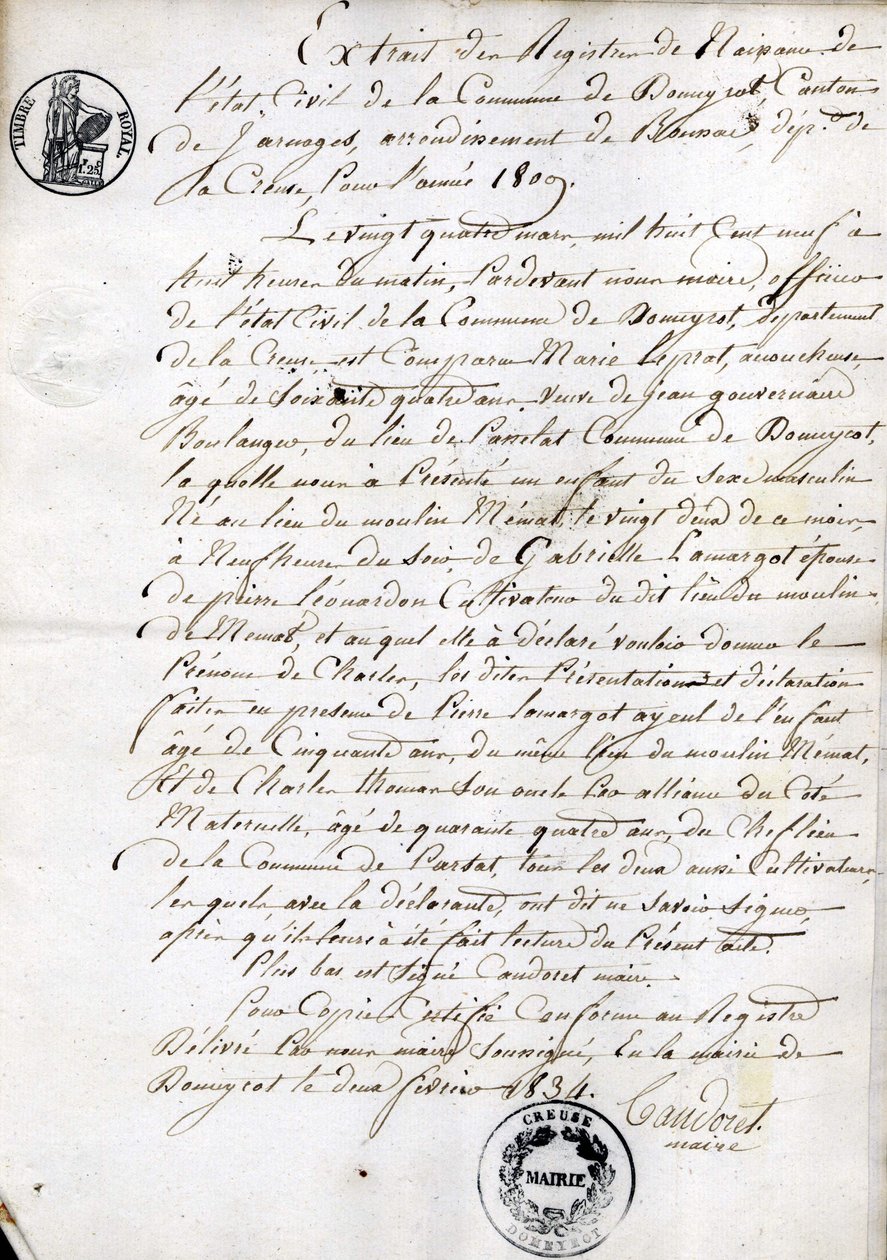 TIMBRE ROYAL
1.25
Extrait des Registres de Naissance de
l'état Civil de la Commune de Domeyrot Canton
de Jarnages, arrondissement de Boussac, dép.t de
la Creuse, Pour l'année 1809.
Le vingt quatre mars, mil huit Cent neuf à
huit heures du matin, Pardevant nous maire, officier
de l'état Civil de la Commune de Domeyrot, département
de la Creuse, est Comparue Marie Leprat, accoucheuse,
âgé de Soixante quatre ans, veuve de jean gouvernaire
Boulanger, du lieu de Commune de Domeyrot,
la quelle nous à Présenté un enfant du Sexe masculin
Né au lieu du moulin Mémat, le vingt deux de ce mois,
à Neuf heures du Soir, de Gabrielle Lamargot épouse
de pierre léonardon Cultivateur du dit lieu du moulin
de Memat, et au quel elle à déclaré vouloir donner le
Prénom de Charles, les dites Présentations et déclaration
faites en presence de Pierre lamargot ayeul de l'enfant
âgé de Cinquante ans, du même lieu du moulin Mémat,
Et de Charles thomas Son oncle Par alliance du Coté
Maternelle, âgé de quarante quatre ans, du Cheflieu
de la Commune de Parsat, tous les deux aussi Cultivateurs,
les quels avec la déclarante, ont dit ne Savoir Signer,
après qu'il leurs à été fait lecture du Présent acte.
Plus bas est Signé Candoret maire.
Pour Copie Certifié Conforme au Registre
Délivré Par nous maire Soussigné, En la mairie de
Domeyrot le deux février 1834.
Candoret.
maire
CREUSE
MAIRIE
DOMEYROT